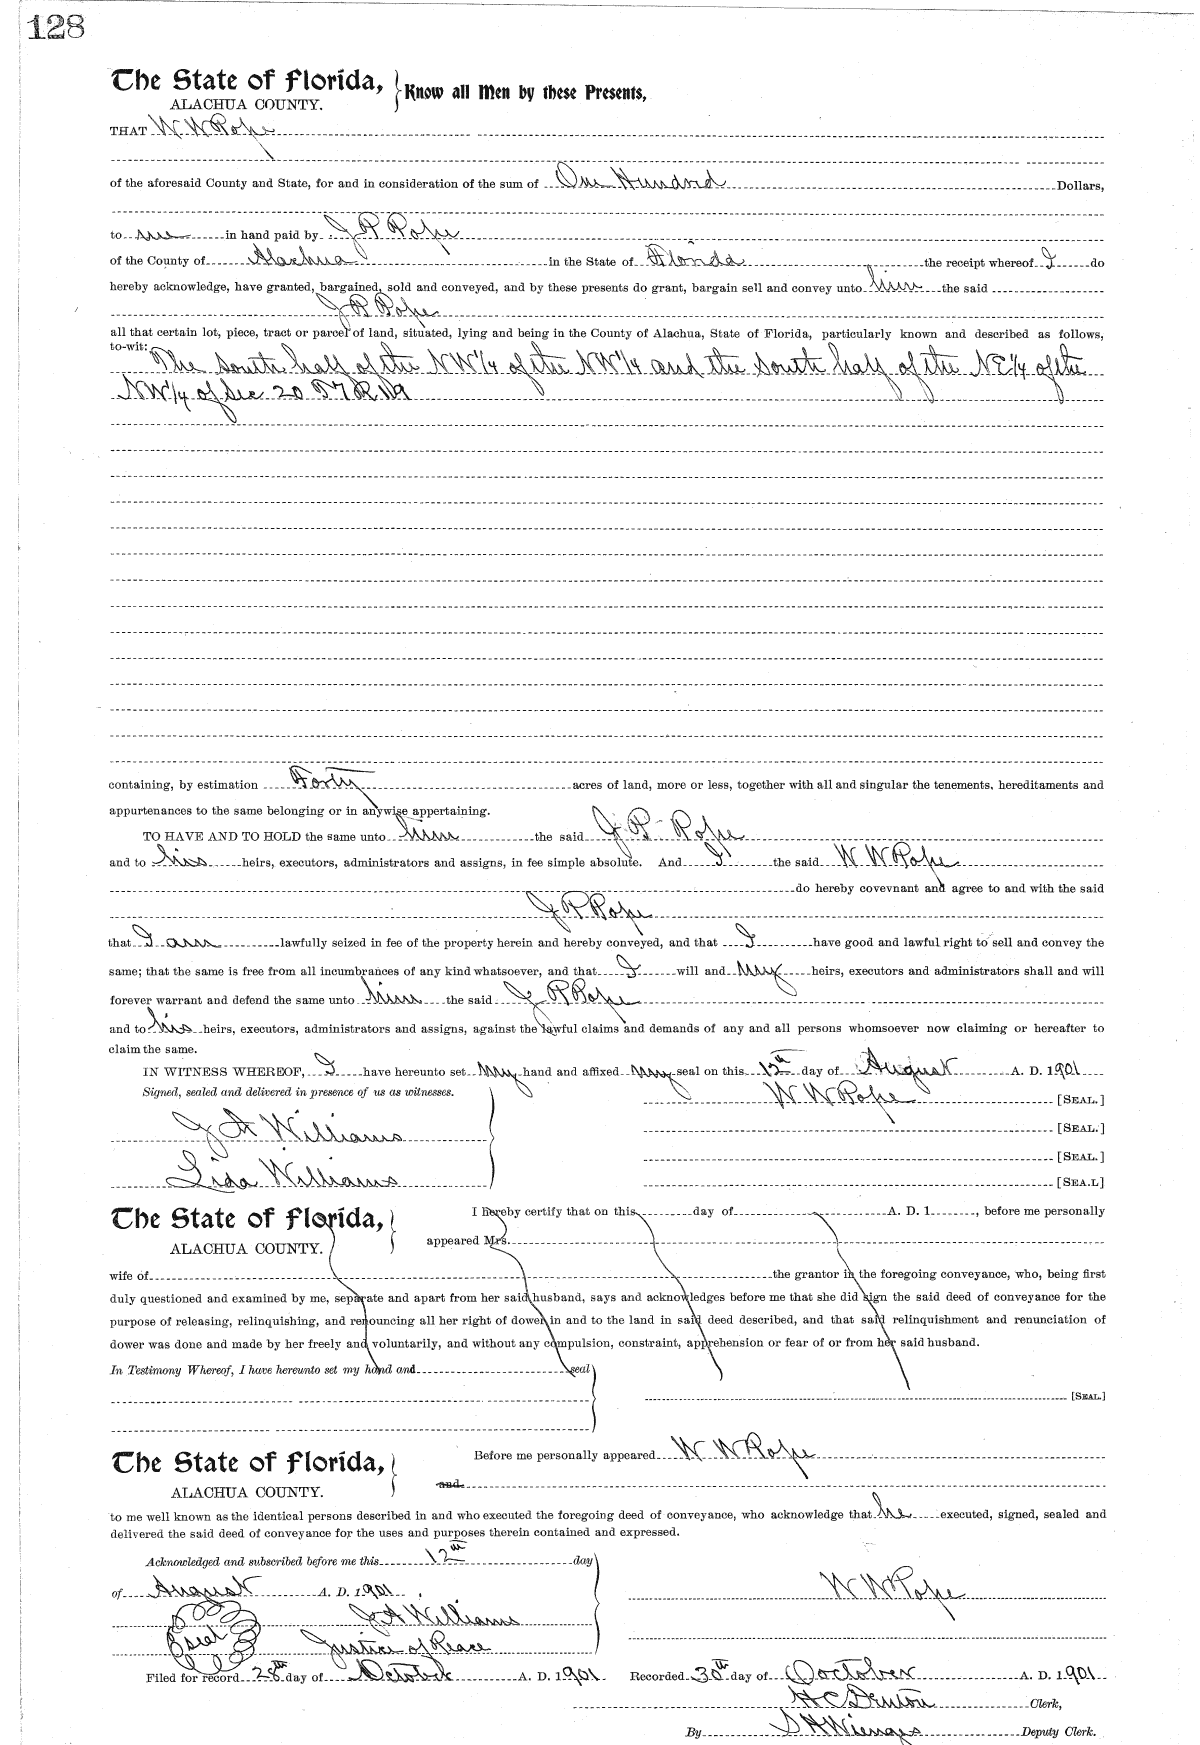 128
The State of Florida,
ALACHUA COUNTY.
Know all Men by these Presents,
THAT W. W Pope
of the aforesaid County and State, for and in consideration of the sum of One Hundred Dollars,
to me in hand paid by J P Pope
of the County of Alachua in the State of Florida the receipt whereof I do
hereby acknowledge, have granted, bargained, sold and conveyed, and by these presents do grant, bargain sell and convey unto him the said
J P Pope
all that certain lot, piece, tract or parcel of land, situated, lying and being in the County of Alachua, State of Florida, particularly known and described as follows,
to-wit:
The South half of the NW¼ of the NW¼ and the South half of the NE¼ of the
NW¼ of Sec 20 T 7 R
containing, by estimation Forty acres of land, more or less, together with all and singular the tenements, hereditaments and
appurtenances to the same belonging or in anywise appertaining.
TO HAVE AND TO HOLD the same unto him the said J P Pope
and to his heirs, executors, administrators and assigns, in fee simple absolute. And I the said W W Pope
do hereby covevnant and agree to and with the said
J P Pope
that I am lawfully seized in fee of the property herein and hereby conveyed, and that I have good and lawful right to sell and convey the
same; that the same is free from all incumbrances of any kind whatsoever, and that I will and my heirs, executors and administrators shall and will
forever warrant and defend the same unto him the said J P Pope
and to his heirs, executors, administrators and assigns, against the lawful claims and demands of any and all persons whomsoever now claiming or hereafter to
claim the same.
IN WITNESS WHEREOF, I have hereunto set my hand and affixed my seal on this 12th day of August A. D. 1901
Signed, sealed and delivered in presence of us as witnesses.
W W Pope [SEAL.]
J A Williams [SEAL.]
[SEAL.]
Lida Williams [SEA.L]
The State of Florida,
ALACHUA COUNTY.
I hereby certify that on this day of A. D. 1 , before me personally
appeared Mrs.
wife of the grantor in the foregoing conveyance, who, being first
duly questioned and examined by me, separate and apart from her said husband, says and acknowledges before me that she did sign the said deed of conveyance for the
purpose of releasing, relinquishing, and renouncing all her right of dower in and to the land in said deed described, and that said relinquishment and renunciation of
dower was done and made by her freely and voluntarily, and without any compulsion, constraint, apprehension or fear of or from her said husband.
In Testimony Whereof, I have hereunto set my hand and seal
[SEAL.]
The State of Florida,
ALACHUA COUNTY.
Before me personally appeared W W Pope
and
to me well known as the identical persons described in and who executed the foregoing deed of conveyance, who acknowledge that he executed, signed, sealed and
delivered the said deed of conveyance for the uses and purposes therein contained and expressed.
Acknowledged and subscribed before me this 12th day
of August A. D. 1901.
W W Pope
J A Williams
Seal Justice of Peace
Filed for record 28th day of October A. D. 1901 Recorded 30th day of October A. D. 1901
H C Denton Clerk,
By S H Wienges Deputy Clerk.